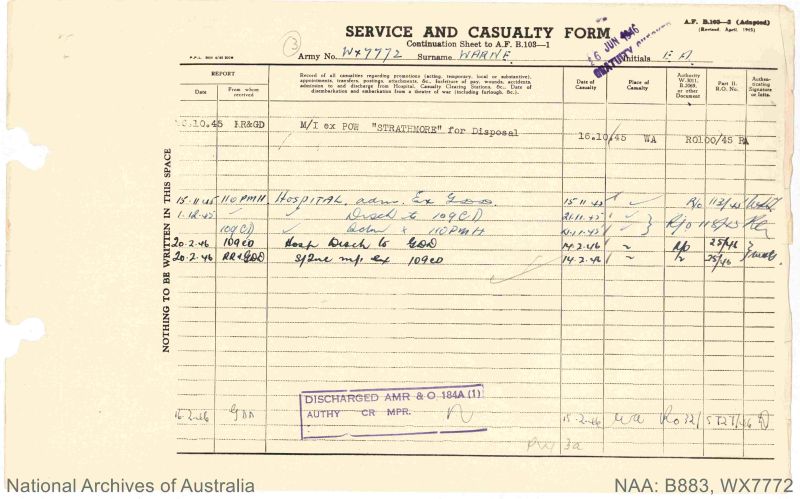 SERVICE AND CASUALTY FORM
Continuation Sheet to A.F. B.103—1
A.F. B.103—2 (Adapted)
(Revised April, 1945)
3
Army No. WX7772 Surname WARNE Initials E A
6 JUN 1946
GRATUITY
REPORT
Date
From whom received
Record of all casualties regarding promotions (acting, temporary, local or substantive), appointments, transfers, postings, attachments, &c., forfeiture of pay, wounds, accidents, admission to and discharge from Hospital, Casualty Clearing Stations, &c. Date of disembarkation and embarkation from a theatre of war (including furlough, &c.).
Date of Casualty
Place of Casualty
Authority W.3011, B.2069, or other Document
Part II. R.O. No.
Authenticating Signature or Initls.
NOTHING TO BE WRITTEN IN THIS SPACE
16.10.45 RR&GD M/I ex POW "STRATHMORE" for Disposal 16.10/45 WA RO100/45
15.11.45 110PMH HOSPITAL adm. Ex GDD 15.11.45 R/o 113/45
1.12.45 Disch to 109CD 21.11.45 R/o 118/45
109CD adm x 110PMH 21.11.45
20.2.46 109CD Hosp Disch to GDD 14.2.46 R/o 25/46
20.2.46 RR&GDD ex 109CD 14.2.46 25/46
DISCHARGED AMR & O 184A (1)
AUTHY CR MPR.
15-2-46 GDD 15-2-46 WA Ro 32/
National Archives of Australia
NAA: B883, WX7772